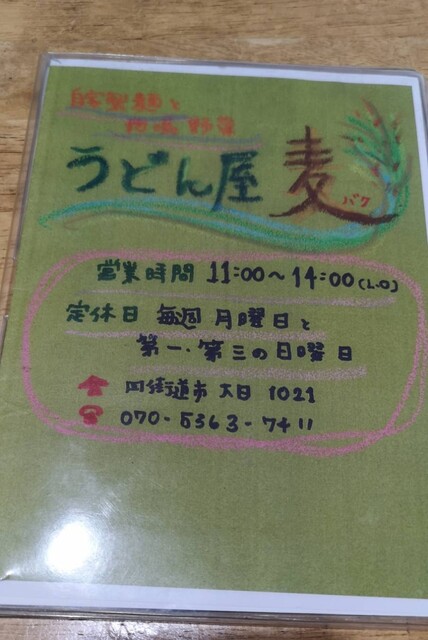 自家製麺と
地場野菜
うどん屋 麦
バク
営業時間 11:00～14:00(L.O)
定休日 毎週 月曜日と
第一・第三の日曜日
四街道市 大日 1021
☎ 070-5363-7411